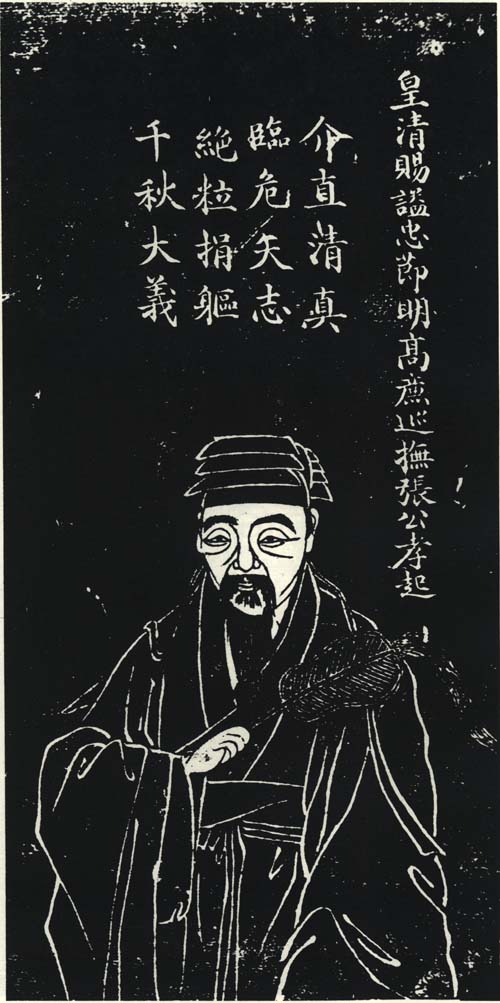 皇清賜謚忠節明髙㢘巡撫張公孝起
介直清真
臨危矢志
絶粒捐軀
千秋大義